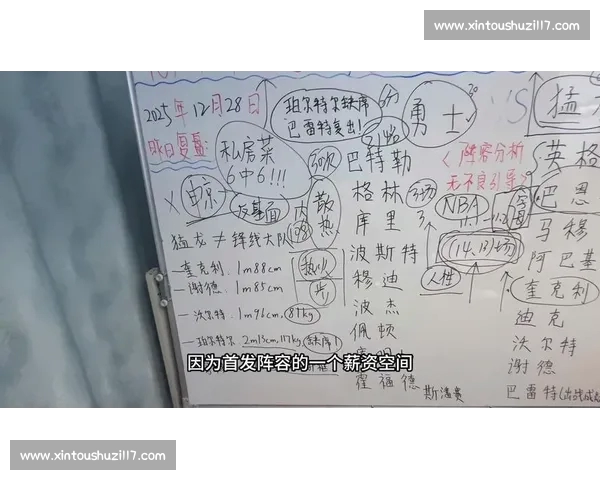 www.xintoushuzi1l7.com
2025年12月28日
昨日复盘:
私房菜
6中6!!!
珀尔特尔缺席
巴雷特复出!
勇士
VS
猛
<阵容分析
无不良引导>
反基面
猛龙≠锋线大队
-奎克利. 1m88cm
-谢德. 1m85cm
-沃尔特. 1m96cm, 87kg
-珀尔特尔 2m13cm, 117kg 缺席!
散热
巴特勒
格林
库里
波斯特
穆迪
波杰
佩顿
霍福德
斯潘赛
NBA
(14、13)场
人性
英格
巴恩
马穆
阿巴基
奎克利
迪克
沃尔特
谢德
巴雷特
因为首发阵容的一个薪资空间
www.xintoushuzi1l7.com